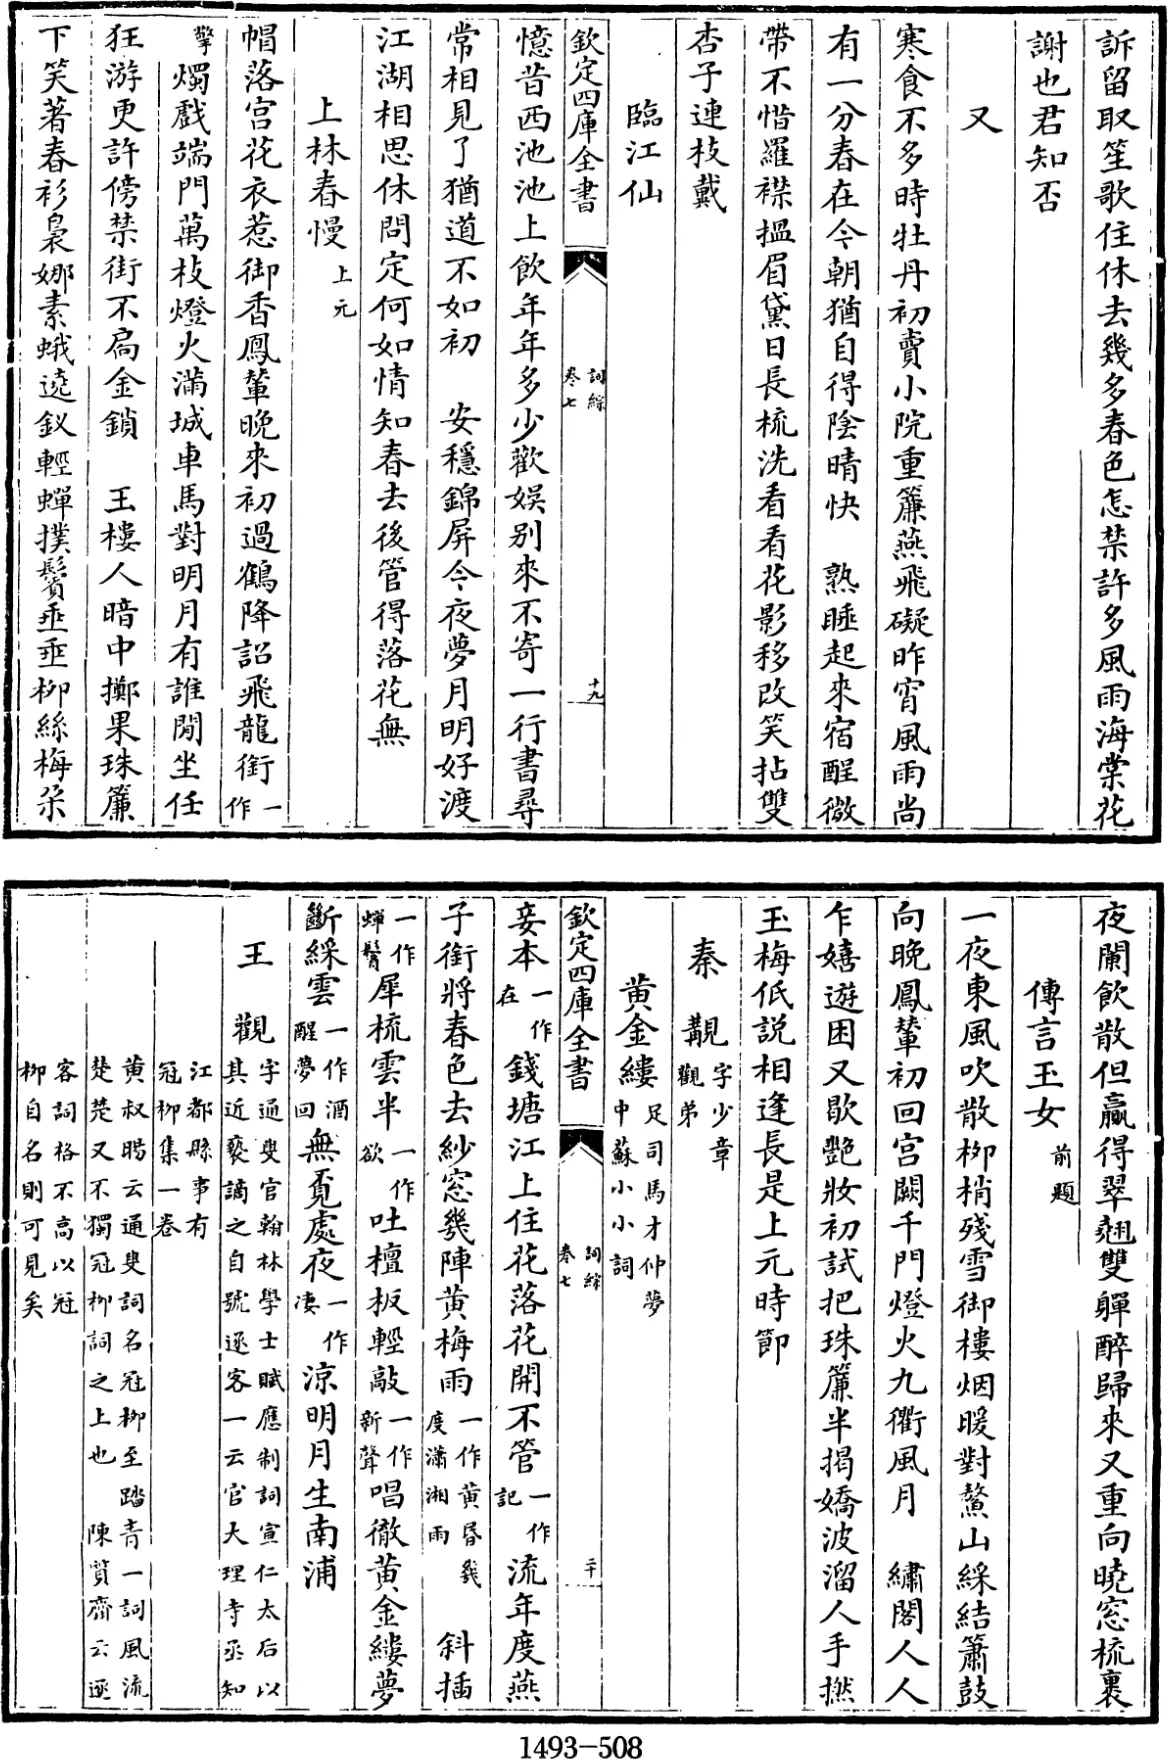 訴留取笙歌住休去幾多春色怎禁許多風雨海棠花
謝也君知否
又
寒食不多時牡丹初賣小院重簾燕飛礙昨宵風雨尚
有一分春在今朝猶自得陰晴快　熟睡起來宿酲微
帶不惜羅襟揾眉黛日長梳洗看看花影移改笑拈雙
杏子連枝戴
臨江仙
憶昔西池池上飲年年多少歡娱别來不寄一行書尋
常相見了猶道不如初　安穩錦屏今夜夢月明好渡
江湖相思休問定何如情知春去後管得落花無
上林春慢上元
帽落宫花衣惹御香鳳輦晚來初過鶴降詔飛龍銜一作
擎燭戲端門萬枝燈火滿城車馬對明月有誰閒坐任
狂游更許傍禁街不扃金鎖　玉樓人暗中擲果珠簾
下笑著春衫裊娜素蛾遶釵輕蟬撲鬢垂垂柳絲梅朶
欽定四庫全書
詞綜
卷七
十九
夜闌飲散但贏得翠翹雙軃醉歸來又重向曉窓梳裹
傳言玉女前題
一夜東風吹散柳梢殘雪御樓烟暖對鰲山綵結簫鼓
向晚鳳輦初回宫闕千門燈火九衢風月　繡閣人人
乍嬉遊困又歇艷妝初試把珠簾半揭嬌波溜人手撚
玉梅低説相逢長是上元時節
秦覯字少章觀弟
黄金縷足司馬才仲夢中蘇小小詞
欽定四庫全書
詞綜
卷七
二十
妾本一作在錢塘江上住花落花開不管一作記流年度燕
子銜將春色去紗窓幾陣黄梅雨一作黄昏幾度瀟湘雨　斜插
一作蟬鬢犀梳雲半一作欲吐檀板輕敲一作新聲唱徹黄金縷夢
斷綵雲一作酒醒夢回無覔處夜一作凄涼明月生南浦
王觀字通叟官翰林學士賦應制詞宣仁太后以其近褻謫之自號逐客一云官大理寺丞知
江都縣事有冠柳集一卷
黄叔暘云通叟詞名冠柳至踏青一詞風流楚楚又不獨冠柳詞之上也　陳質齋云逐
客詞格不高以冠柳自名則可見矣
1493—508